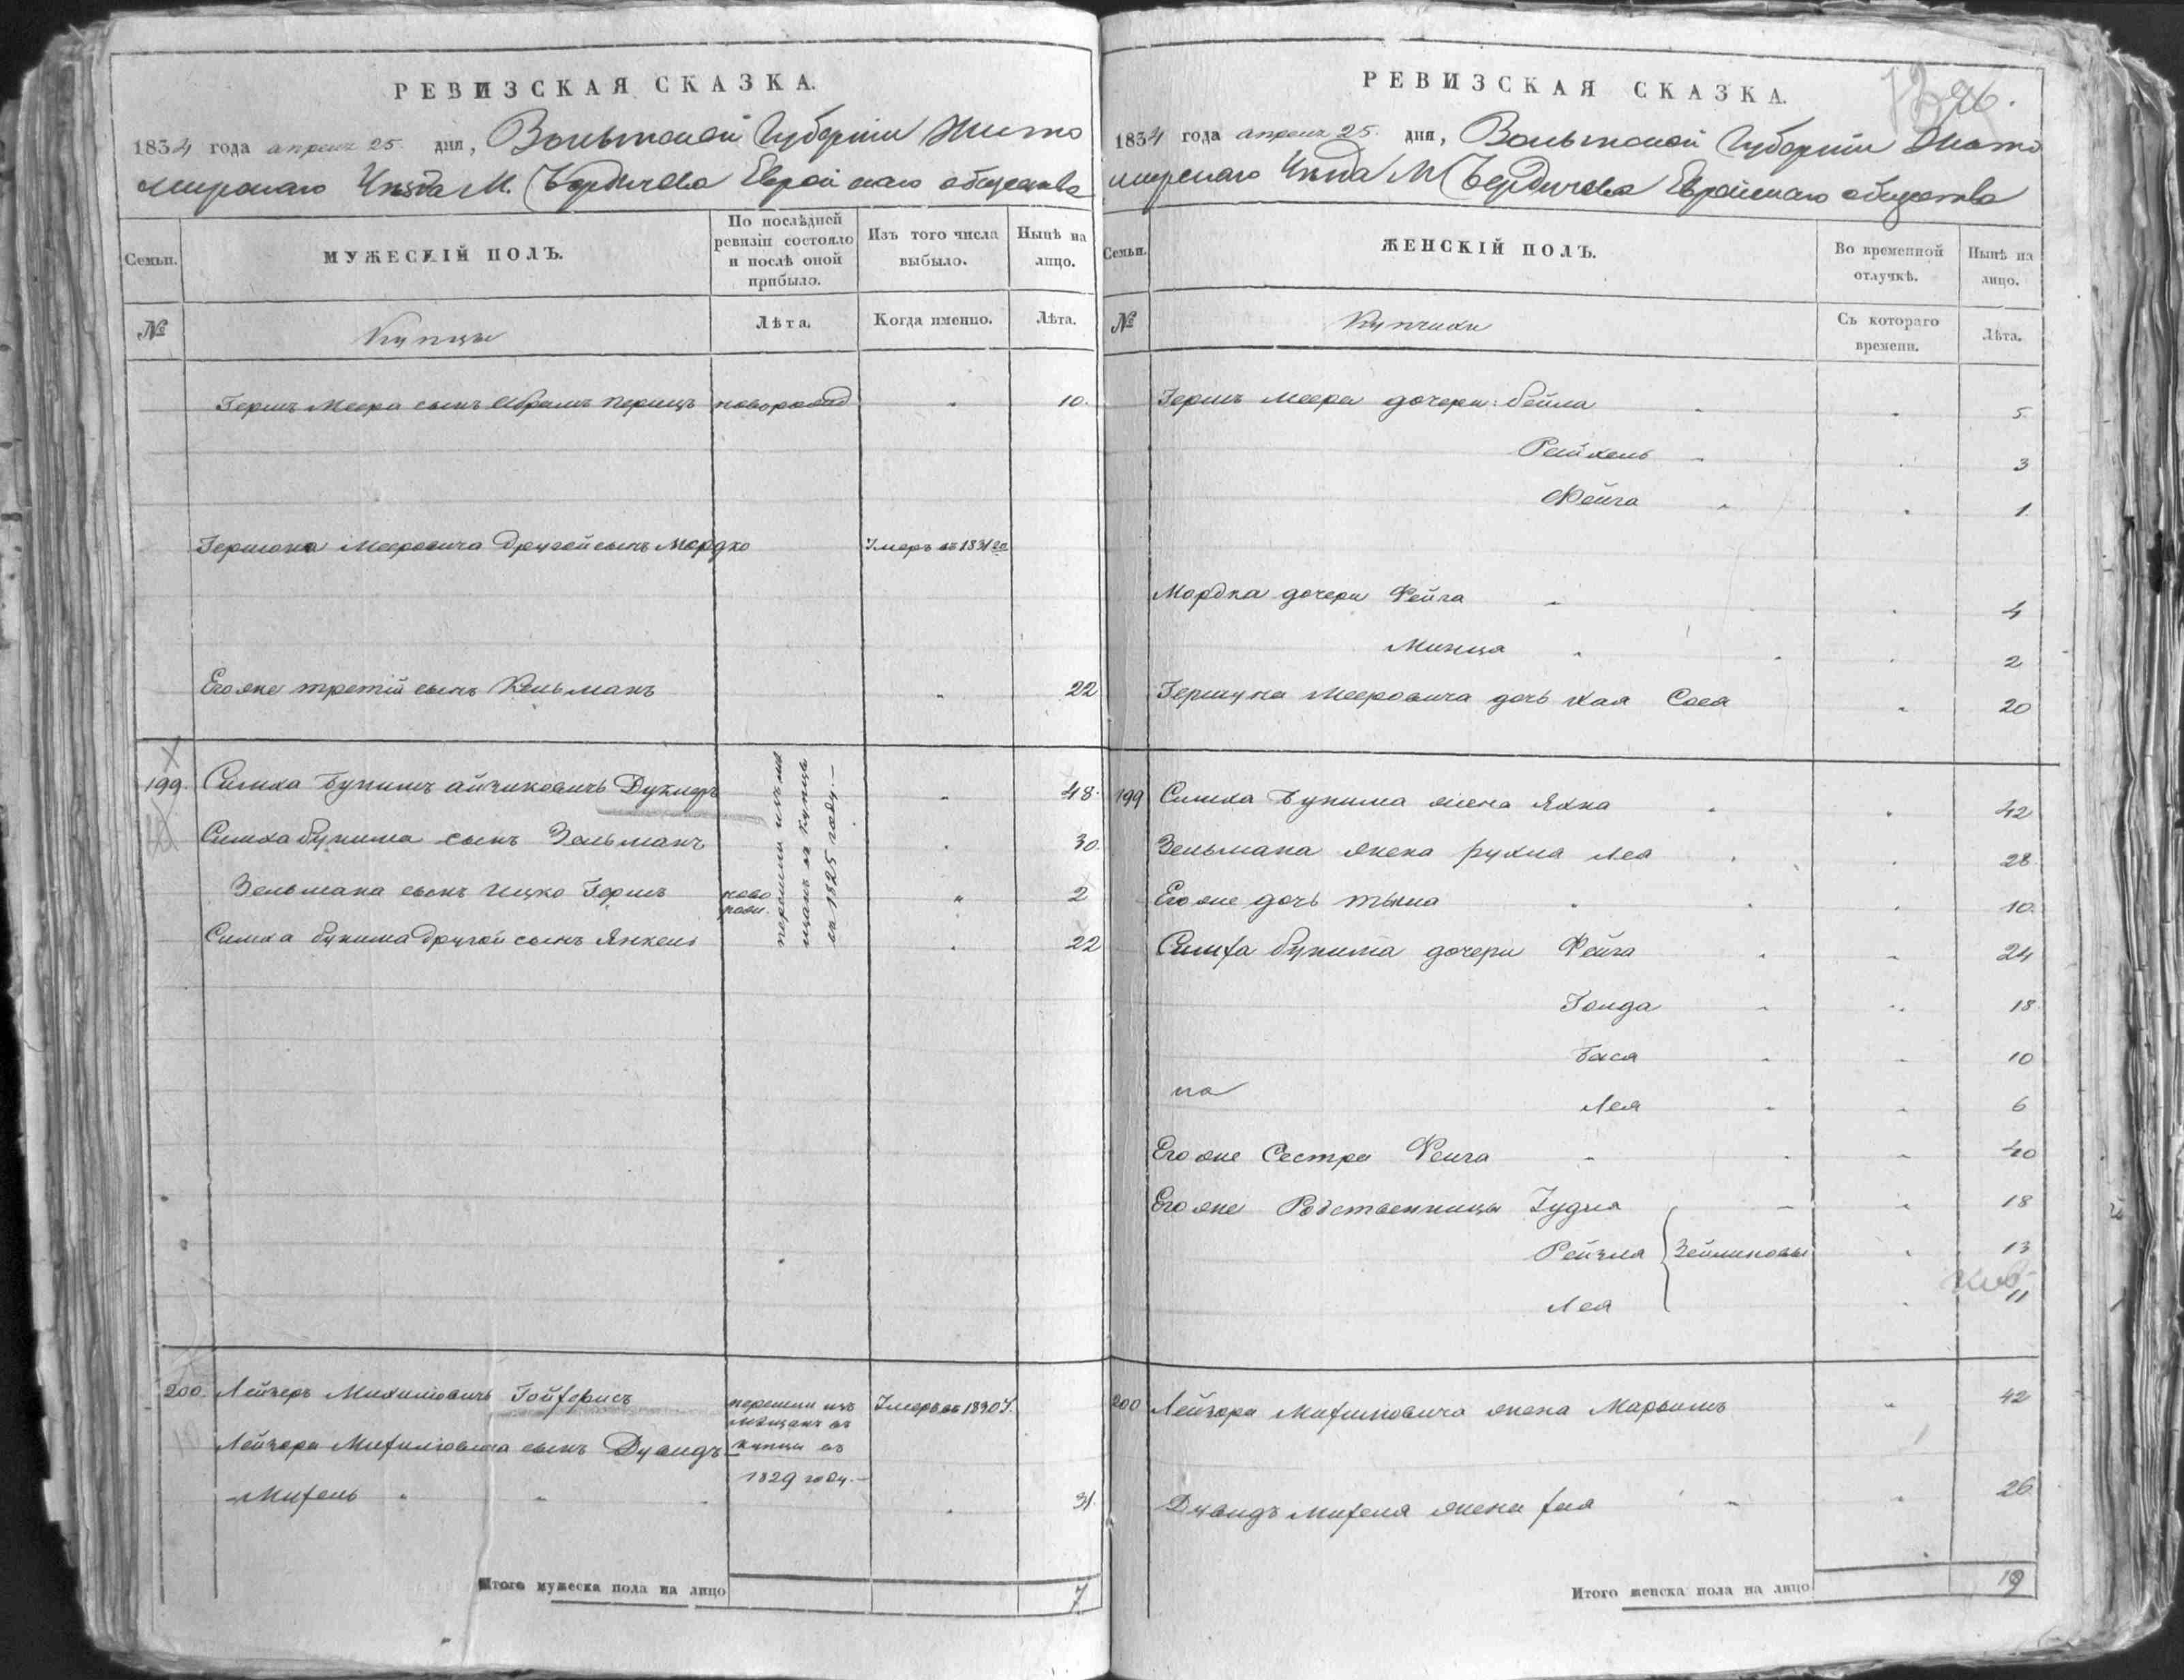 РЕВИЗСКАЯ СКАЗКА.
1834 года апреля 25 дня, Волынской Губерніи Жито
мирскаго Уѣзда М. Бердичева Еврейскаго общества
Семьи.
МУЖЕСКІЙ ПОЛЪ.
По послѣдней ревизіи состояло и послѣ оной прибыло.
Изъ того числа выбыло.
Нынѣ на лицо.
№
Купцы
Лѣта.
Когда именно.
Лѣта.
Герша Меера сынъ Абрамъ Перецъ новорожд " 10.
Гершона Мееровича другой сынъ Мордко Умеръ въ 1831
Его же третій сынъ Кельманъ " 22
199. Симха Бунимъ Айзиковичъ Дуклеръ " 48.
Симха Бунима сынъ Зельманъ " 30.
Зельмана сынъ Ицко Гершъ ново рожд. " 2
Симха Бунима другой сынъ Янкель " 22
перешли изъ мѣ
щанъ въ купцы
въ 1825 году.—
200. Лейзеръ Михилювичъ Умеръ въ 1830 г.
перешли изъ
мѣщанъ въ
купцы въ
1829 году.—
Лейзера Михилювича сынъ Дувидъ
Михель " " " 31.
Итого мужеска пола на лицо 7
РЕВИЗСКАЯ СКАЗКА.
96.
1834 года апреля 25. дня, Волынской Губерніи Жито
мирскаго Уѣзда М. Бердичева Еврейскаго общества
Семьи.
ЖЕНСКІЙ ПОЛЪ.
Во временной отлучкѣ.
Нынѣ на лицо.
№
Купчихи
Съ котораго времени.
Лѣта.
Гершъ Меера дочери: Бейла " " 5
Рейхель " " 3
Фейга " " 1.
Мордка дочери Фейга " " 4
Минца " " 2
Гершуна Мееровича дочь Хая Сося " 20
199 Симха Бунима жена Яхна " " 42
Зельмана жена Рухля Лея " " 28.
Его же дочь " " 10.
Симха Бунима дочери Фейга " " 24
Голда " " 18.
Бася " " 10
Лея " " 6
Его же Сестра Фейга " " 40
Его же Родственницы " 18
Рейзля Зейликовы " 13
Лея " 11
200 Лейзора Михилювича жена Марьямъ " 42
Дувидъ Михеля жена Хая " " 26
Итого женска пола на лицо 19